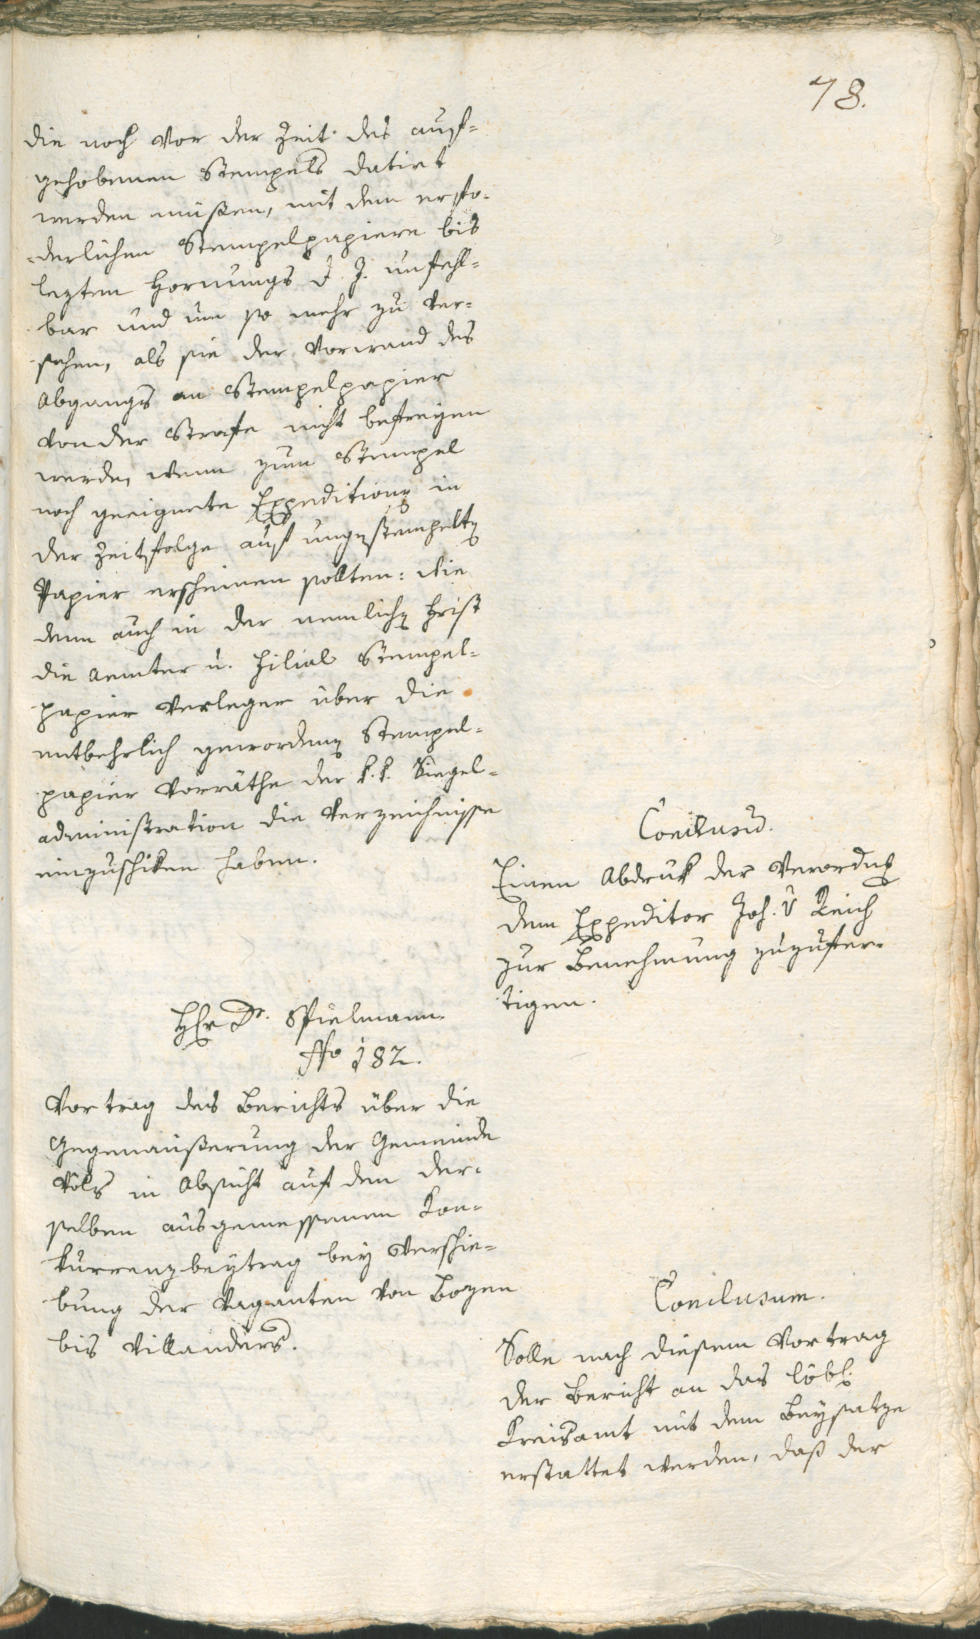 78.
die noch vor der Zeit des auf-
gehobenen Stempels datirt
werden müßen, mit dem erfo-
derlichen Stempelpapiere bis
lezten Hornungs d. J. unfehl-
bar und um so mehr zu ver-
sehen, als sie der Vorwand des
Abgangs an Stempelpapier
von der Strafe nicht befreyen
werde, wenn zum Stempel
noch geeignete Expeditionen in
der Zeitfolge auf ungestempelten
Papier erscheinen sollten: die
denn auch in der nemlichen Frist
die Aemter u. Filial Stempel-
papier Verleger über die
entbehrlich gewordenen Stempel-
papier Vorräthe der k. k. Siegel-
administration die Verzeichnisse
einzuschiken haben.
Conclusum.
Einen Abdruk der Verordnung
dem Expeditor Joh. v Reich
zur Benehmung zuzufer-
tigen.
Hr Dr. Spielmann.
No 182.
Vortrag des Berichts über die
Gegenäußerung der Gemeinde
Völs in Absicht auf den der-
selben ausgemessenen Kon-
kurrenzbeytrag bey Verschie-
bung der Vaganten von Bozen
bis Villanders.
Conclusum.
Solle nach diesem Vortrag
der Bericht an das löbl.
Kreisamt mit dem Beysatze
erstattet werden, daß der